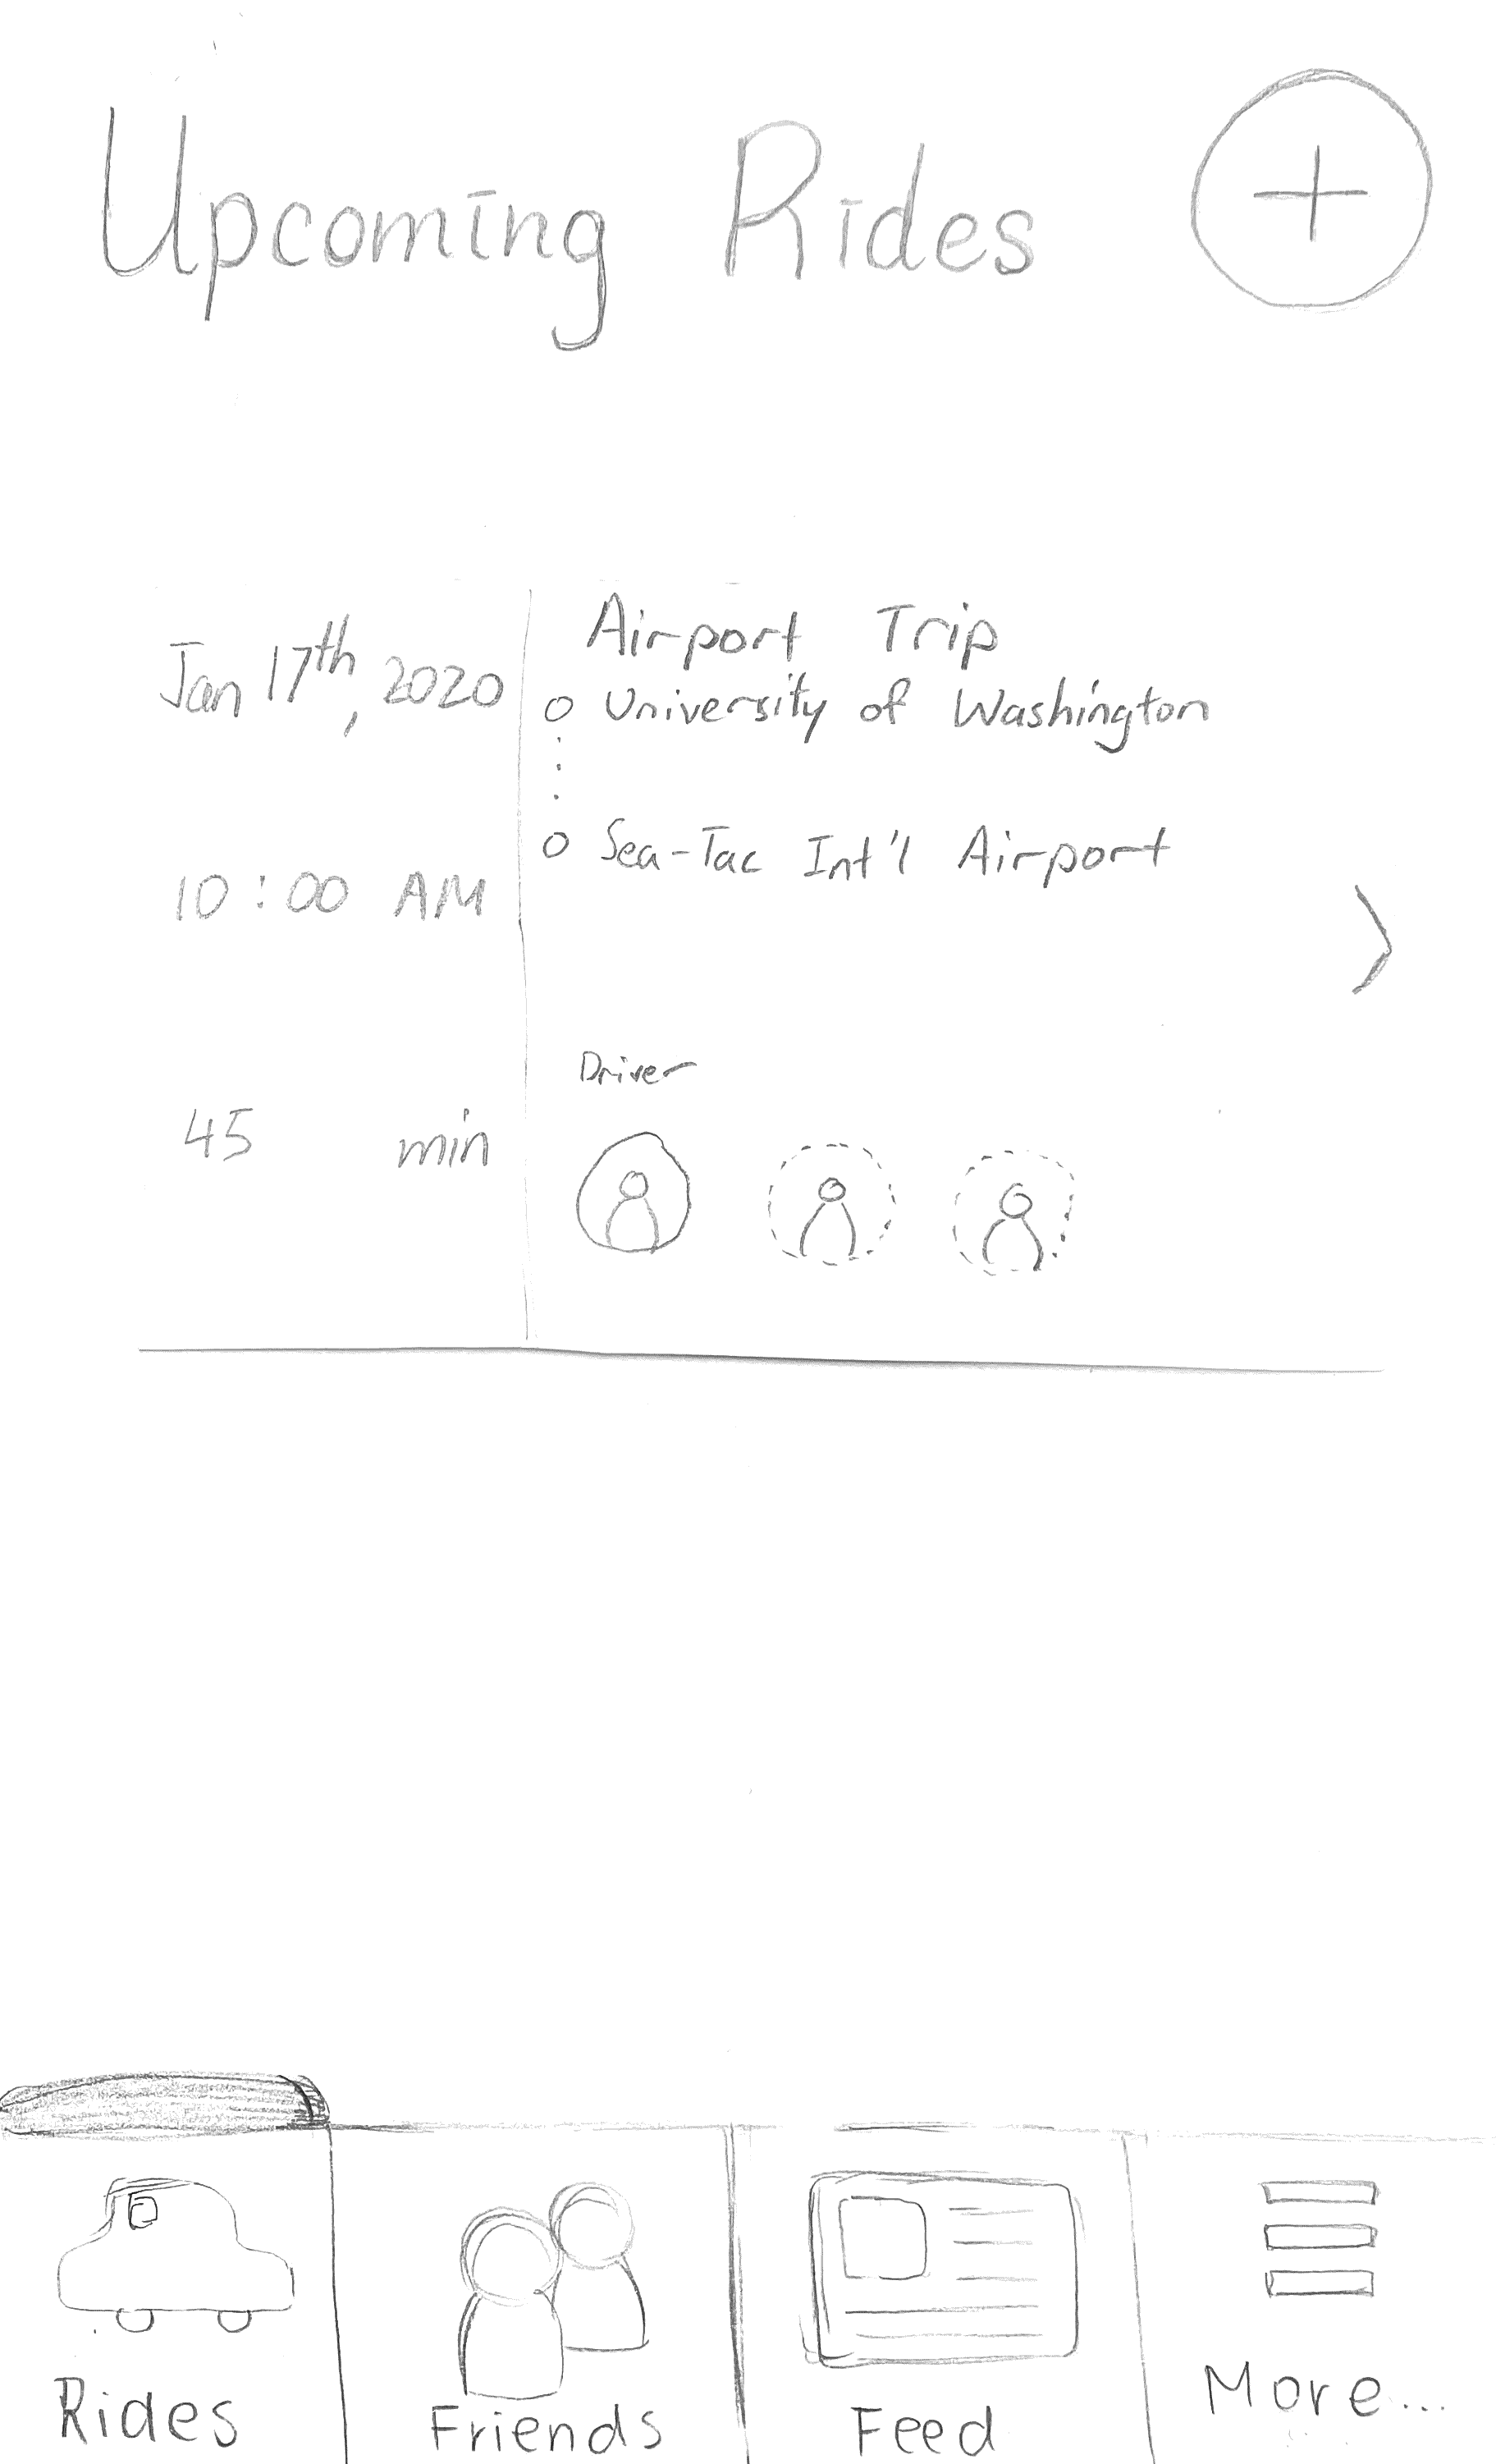 Upcoming Rides
Jan 17th, 2020
10:00 AM
45 min
Airport Trip
University of Washington
Sea-Tac Int'l Airport
Driver
Rides
Friends
Feed
More...